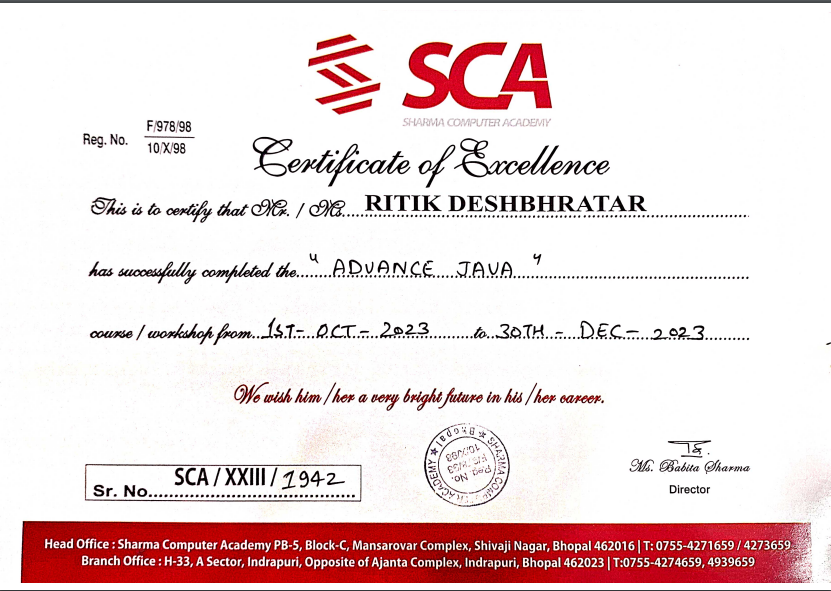 SCA
SHARMA COMPUTER ACADEMY
Reg. No. F/978/98
10/X/98
Certificate of Excellence
This is to certify that Mr. / Ms. RITIK DESHBHRATAR
has successfully completed the "ADVANCE JAVA"
course / workshop from 1ST - OCT - 2023 to 30TH - DEC - 2023
We wish him / her a very bright future in his / her career.
SHARMA COMPUTER ACADEMY ★ Bhopal ★
Reg. No.
10/X/98
Ms. Babita Sharma
Director
Sr. No. SCA / XXIII / 1942
Head Office : Sharma Computer Academy PB-5, Block-C, Mansarovar Complex, Shivaji Nagar, Bhopal 462016 | T: 0755-4271659 / 4273659
Branch Office : H-33, A Sector, Indrapuri, Opposite of Ajanta Complex, Indrapuri, Bhopal 462023 | T:0755-4274659, 4939659